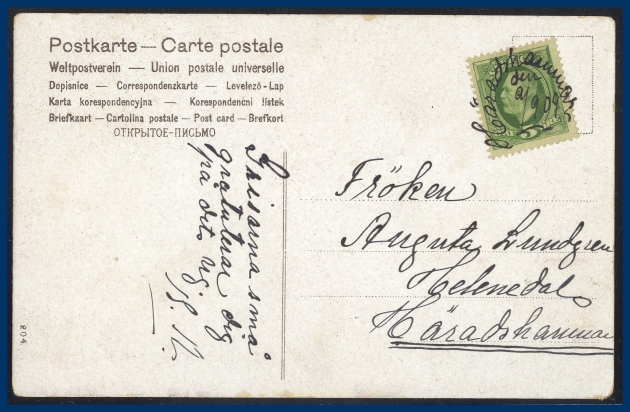 Postkarte — Carte postale
Weltpostverein — Union postale universelle
Dopisnice — Correspondenzkarte — Levelező-Lap
Karta korespondencyjna — Korespondenčni lístek
Briefkzart — Cartolina postale — Post card — Brefkort
ОТКРЫТОЕ-ПИСЬМО
Grisarna små
gratulerar dig
på ditt
Häradshammar
den
9 09
Fröken
Augusta Lundgren
Helenedal
Häradshammar
204